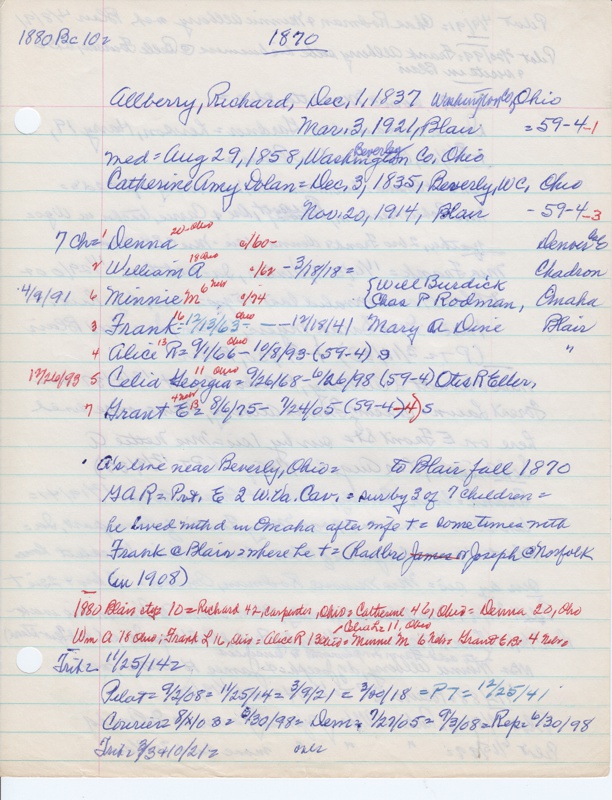 1880 Bc 10=
1870
Allberry, Richard, Dec, 1, 1837 Washington Co, Ohio
Mar. 3, 1921, Blair = 59-4-1
med = Aug 29, 1858, Washington Co, Ohio
Beverly
Catherine Amy Dolan = Dec, 3, 1835, Beverly, W C, Ohio
Nov. 20, 1914, Blair - 59-4-3
7 Ch = 1 Denna 20 Ohio c/60- Denver
2 William A 18 Ohio c/62 - 3/18/18 = Chadron
4/9/91 6 Minnie M 6 Neb c/74 { Will Burdick
Chas P Rodman, Omaha
3 Frank = 16 12/13/63 Ohio - - - 12/18/41 Mary A Dixe Blair
4 Alice R = 13 Ohio 9/1/66 - 10/8/93 - (59-4) "
12/26/93 5 Celia Georgia = 11 Ohio 9/26/68 - 6/26/98 (59-4) Otis R Eller,
7 Grant E B = 4 Neb 8/6/75 - 7/24/05 (59-4) S
A's live near Beverly, Ohio = to Blair fall 1870
GAR = Pvt. E 2 W.Va. Cav. = sur by 3 of 7 children =
he lived with d in Omaha after wife + = sometimes with
Frank @ Blair = where he + = (had bro James or Joseph @ Norfolk
(in 1908)
1880 Blair 10 = Richard 42, carpenter, Ohio = Catherine 46, Ohio = Denna 20, Ohio
Wm A 18 Ohio; Frank L 16, Ohio = Alice R 13 Ohio = Celiah = 11, Ohio Minnie M 6 Neb = Grant E B 4 Neb =
Trib = 11/25/14 =
Pilot = 9/2/08 = 11/25/14 = 3/9/21 = 3/20/18 = PT = 12/25/41
Courier = 8/2/03 = 6/30/98 = Dem = 7/27/05 = 9/3/08 = Rep = 6/30/98
Trib = 3/3+10/21 = over